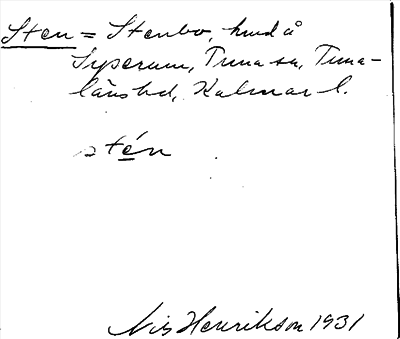 Sten = Stenbo, hmd å
Syserum, Tuna sn, Tuna-
läns hd, Kalmar l.
stén
Nils Henrikson 1931